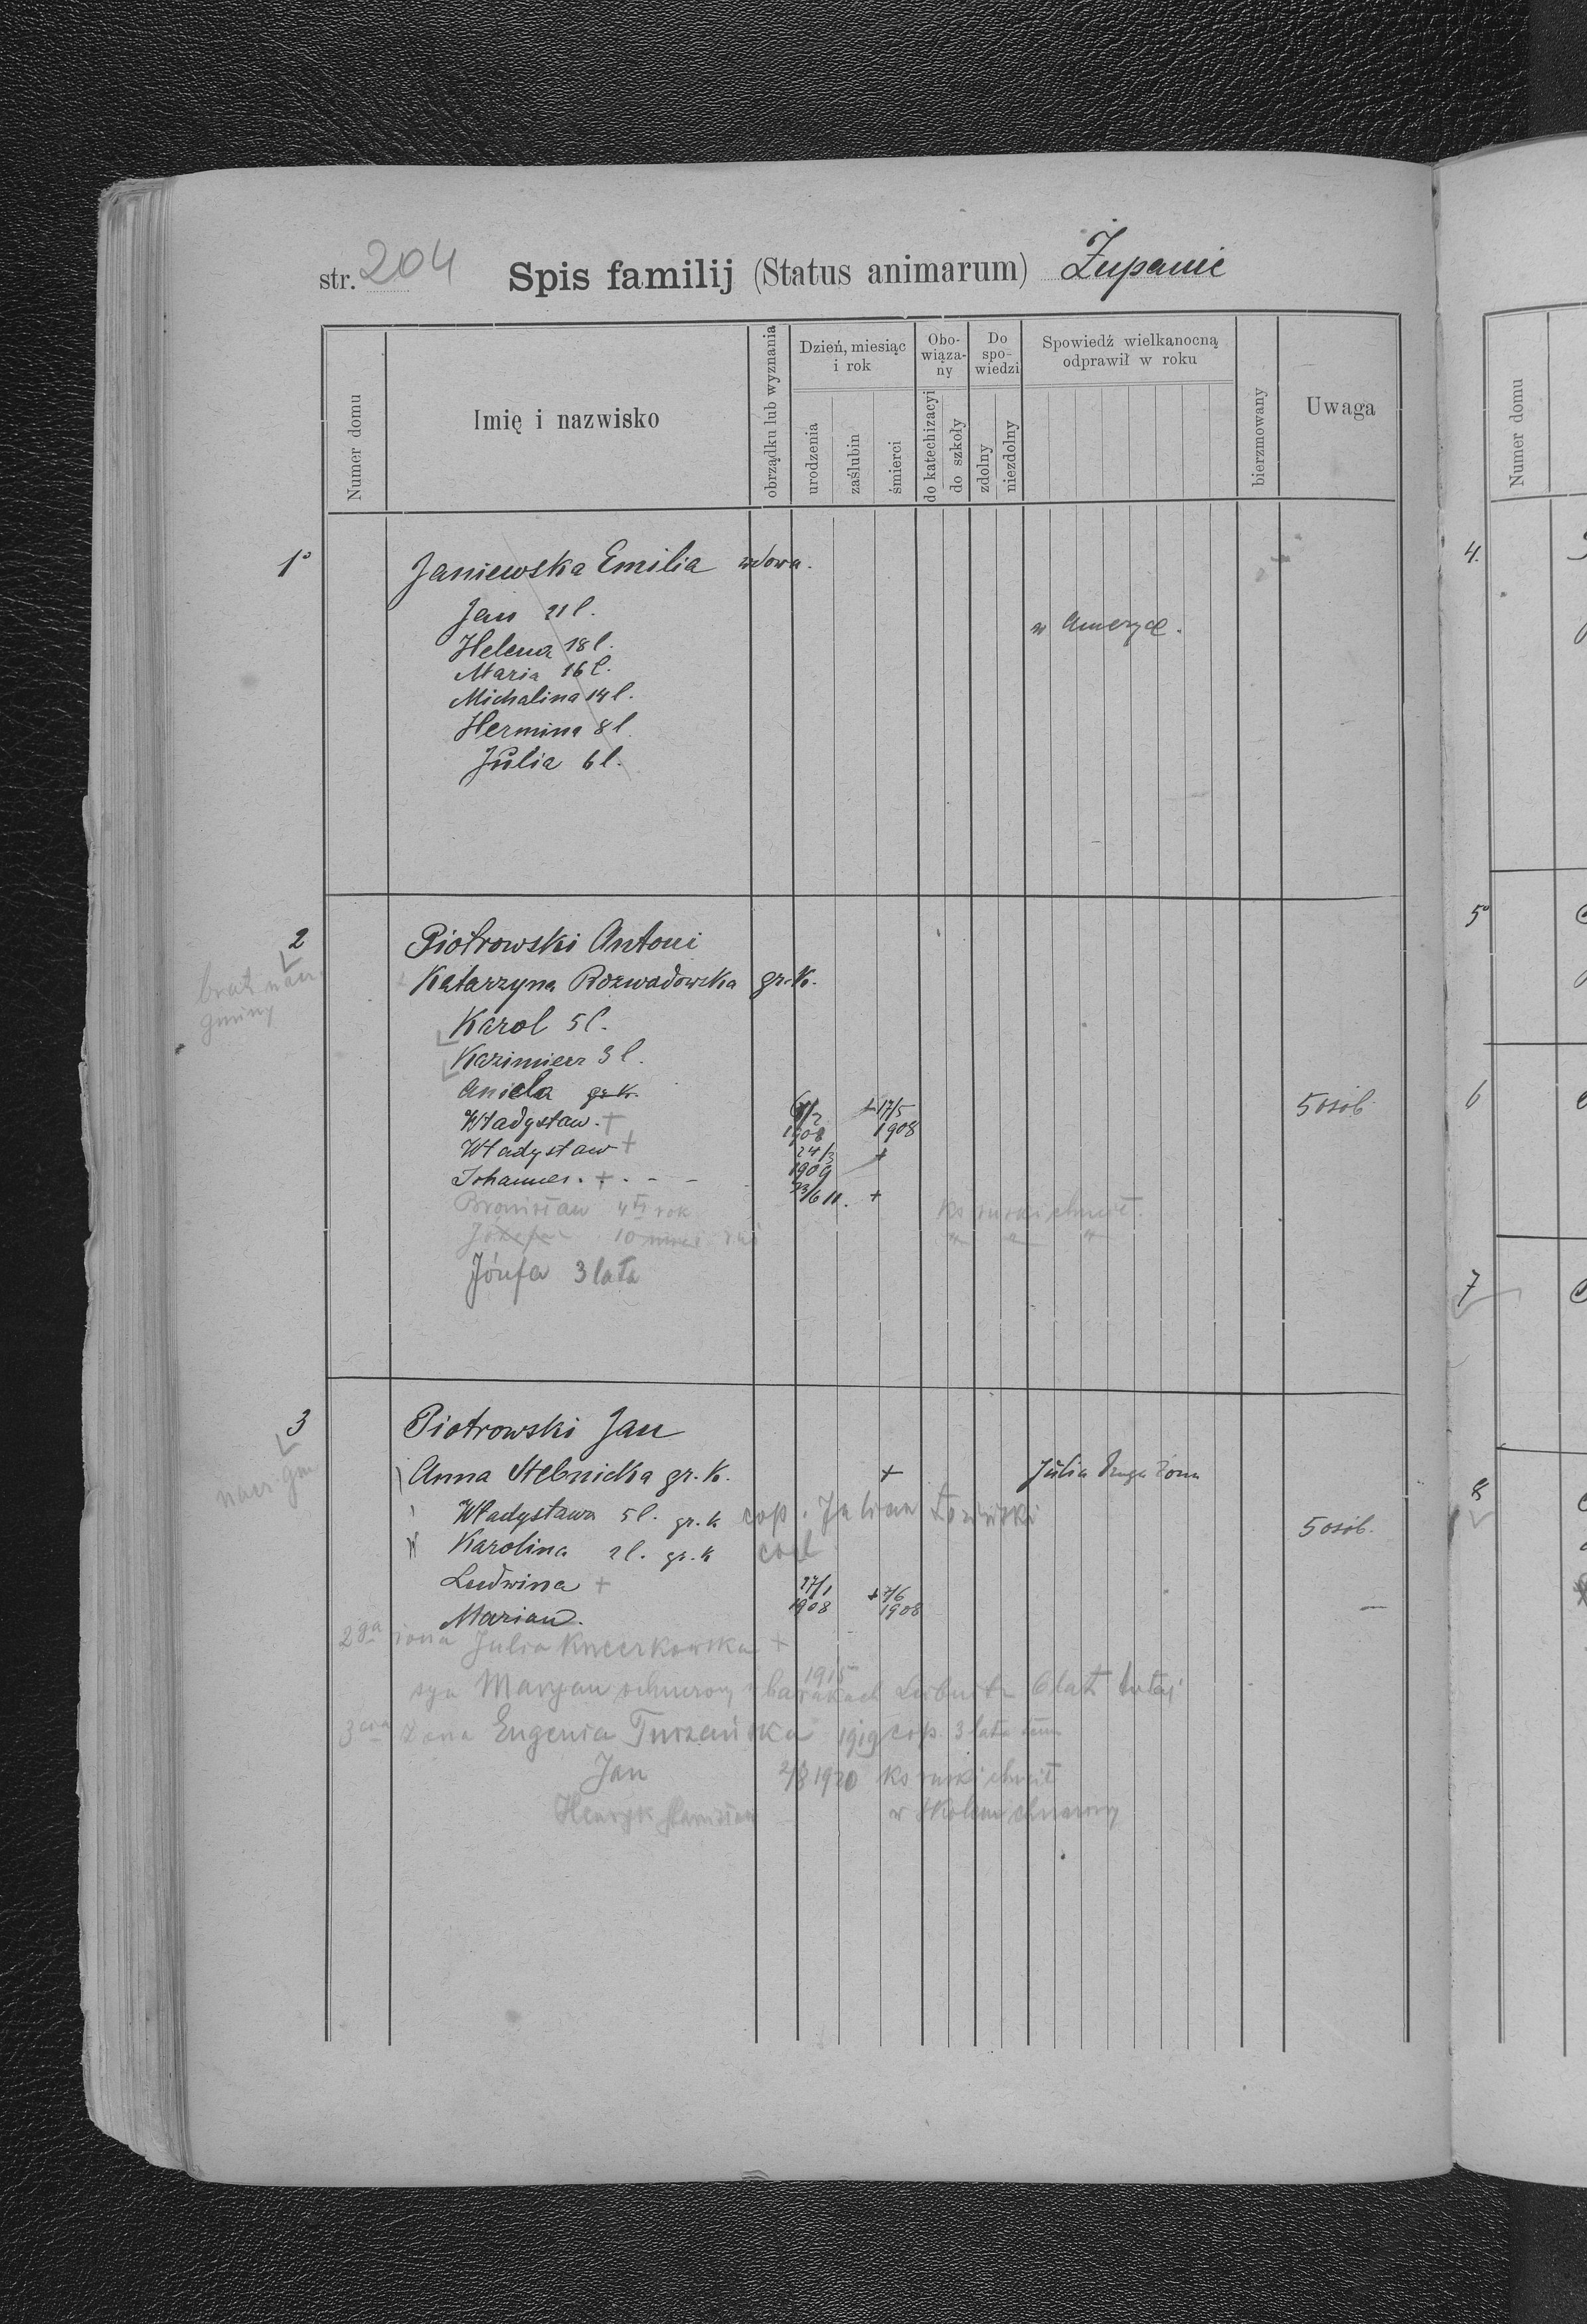 str. 204 Spis familij (Status animarum) Żupanie
Numer domu
Imię i nazwisko
obrządku lub wyznania
Dzień, miesiąc i rok
urodzenia
zaślubin
śmierci
Obo-wiąza-ny
do katechizacyi
do szkoły
Do spo-wiedzi
zdolny
niezdolny
Spowiedź wielkanocną odprawił w roku
bierzmowany
Uwaga
1°
Janiewska Emilia wdowa.
Jan 21 l. w Ameryce.
Helena 18 l.
Maria 16 l.
Michalina 14 l.
Hermina 8 l.
Julia 6 l.
2
brat nacz. gminy
Piotrowski Antoni
Katarzyna Rozwadowska gr. K.
Karol 5 l.
Kazimierz 3 l.
Aniela gr. K. 5 osób
Władysław. + 1908 + 17/5 1908
Władysław + 24/3 1909 +
Johannes. + 11. +
Bronisław 4ty rok ks ruski chrzcił.
Józefa 10 " " "
Józefa 3 lata
3
nacz. gm
Piotrowski Jan
Anna Stebnicka gr. K. + Julia druga żona
Władysława 5 l. gr. k cop. Julian
Karolina 2 l. gr. k 5 osób.
Ludwina + 27/1 1908 + 7/6 1908
Marian. —
2ga żona Julia +
syn Maryan 1915 w barakach 6 lat tutaj
3cia żona Eugenia Turzańska 1919 cop. 3 lata
Jan 2/8 1920 ks ruski chrzcił
Henryk Stanisław w Skolem chrzczony
Numer domu
4.
5°
6
7
8